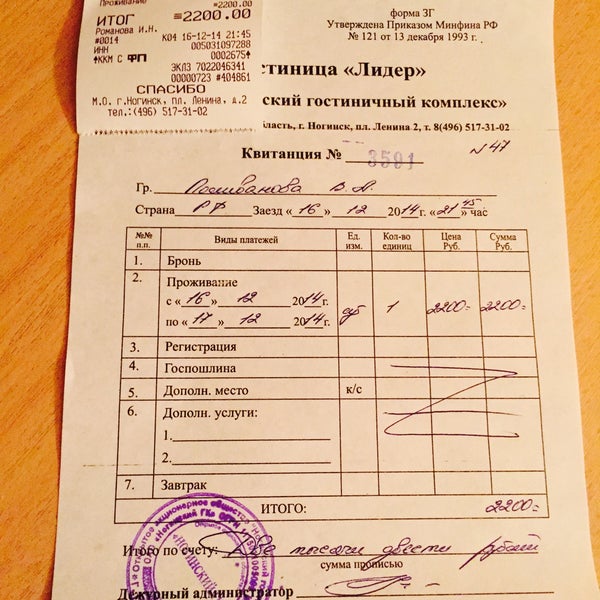 Проживание =2200.00
ИТОГ ≡2200.00
Романова И.Н.
#0014 К04 16-12-14 21:45
ИНН 005031097288
↑ККМ С ФП 0002675↑
ЭКЛЗ 7022046341
00000723 #404861
СПАСИБО
М.О. г.Ногинск, пл. Ленина, д.2
тел.:(496) 517-31-02
форма 3Г
Утверждена Приказом Минфина РФ
№ 121 от 13 декабря 1993 г.
стиница «Лидер»
ский гостиничный комплекс»
бласть, г. Ногинск, пл. Ленина 2, т. 8(496) 517-31-02
Квитанция № 3591 №47
Гр. В. А.
Страна РФ Заезд « 16 » 12 2014 г. «21 45» час
№№ п.п. Виды платежей Ед. изм. Кол-во единиц Цена Руб. Сумма Руб.
1. Бронь
2. Проживание
с « 16 » 12 2014 г.
сут 1 2200= 2200=
по « 17 » 12 2014 г.
3. Регистрация
4. Госпошлина
5. Дополн. место к/с
6. Дополн. услуги:
1.
2.
7. Завтрак
ИТОГО: 2200=
Итого по счету: Две тысячи двести рублей
сумма прописью
Дежурный администратор
Открытое акционерное общество